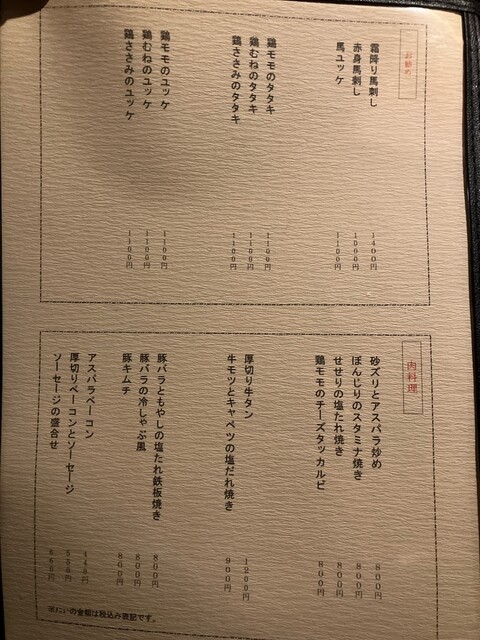 お勧め
霜降り馬刺し 1400円
赤身馬刺し 1000円
馬ユッケ 1100円
鶏モモのタタキ 1100円
鶏むねのタタキ 1100円
鶏ささみのタタキ 1100円
鶏モモのユッケ 1100円
鶏むねのユッケ 1100円
鶏ささみのユッケ 1100円
肉料理
砂ズリとアスパラ炒め 800円
ぼんじりのスタミナ焼き 800円
せせりの塩たれ焼き 800円
鶏モモのチーズタッカルビ 800円
厚切り牛タン 1200円
牛モツとキャベツの塩だれ焼き 900円
豚バラともやしの塩たれ鉄板焼き 800円
豚バラの冷しゃぶ風 800円
豚キムチ 800円
アスパラベーコン 540円
厚切りベーコンとソーセージ 550円
ソーセージの盛合せ 660円
の金額は税込み表記です。